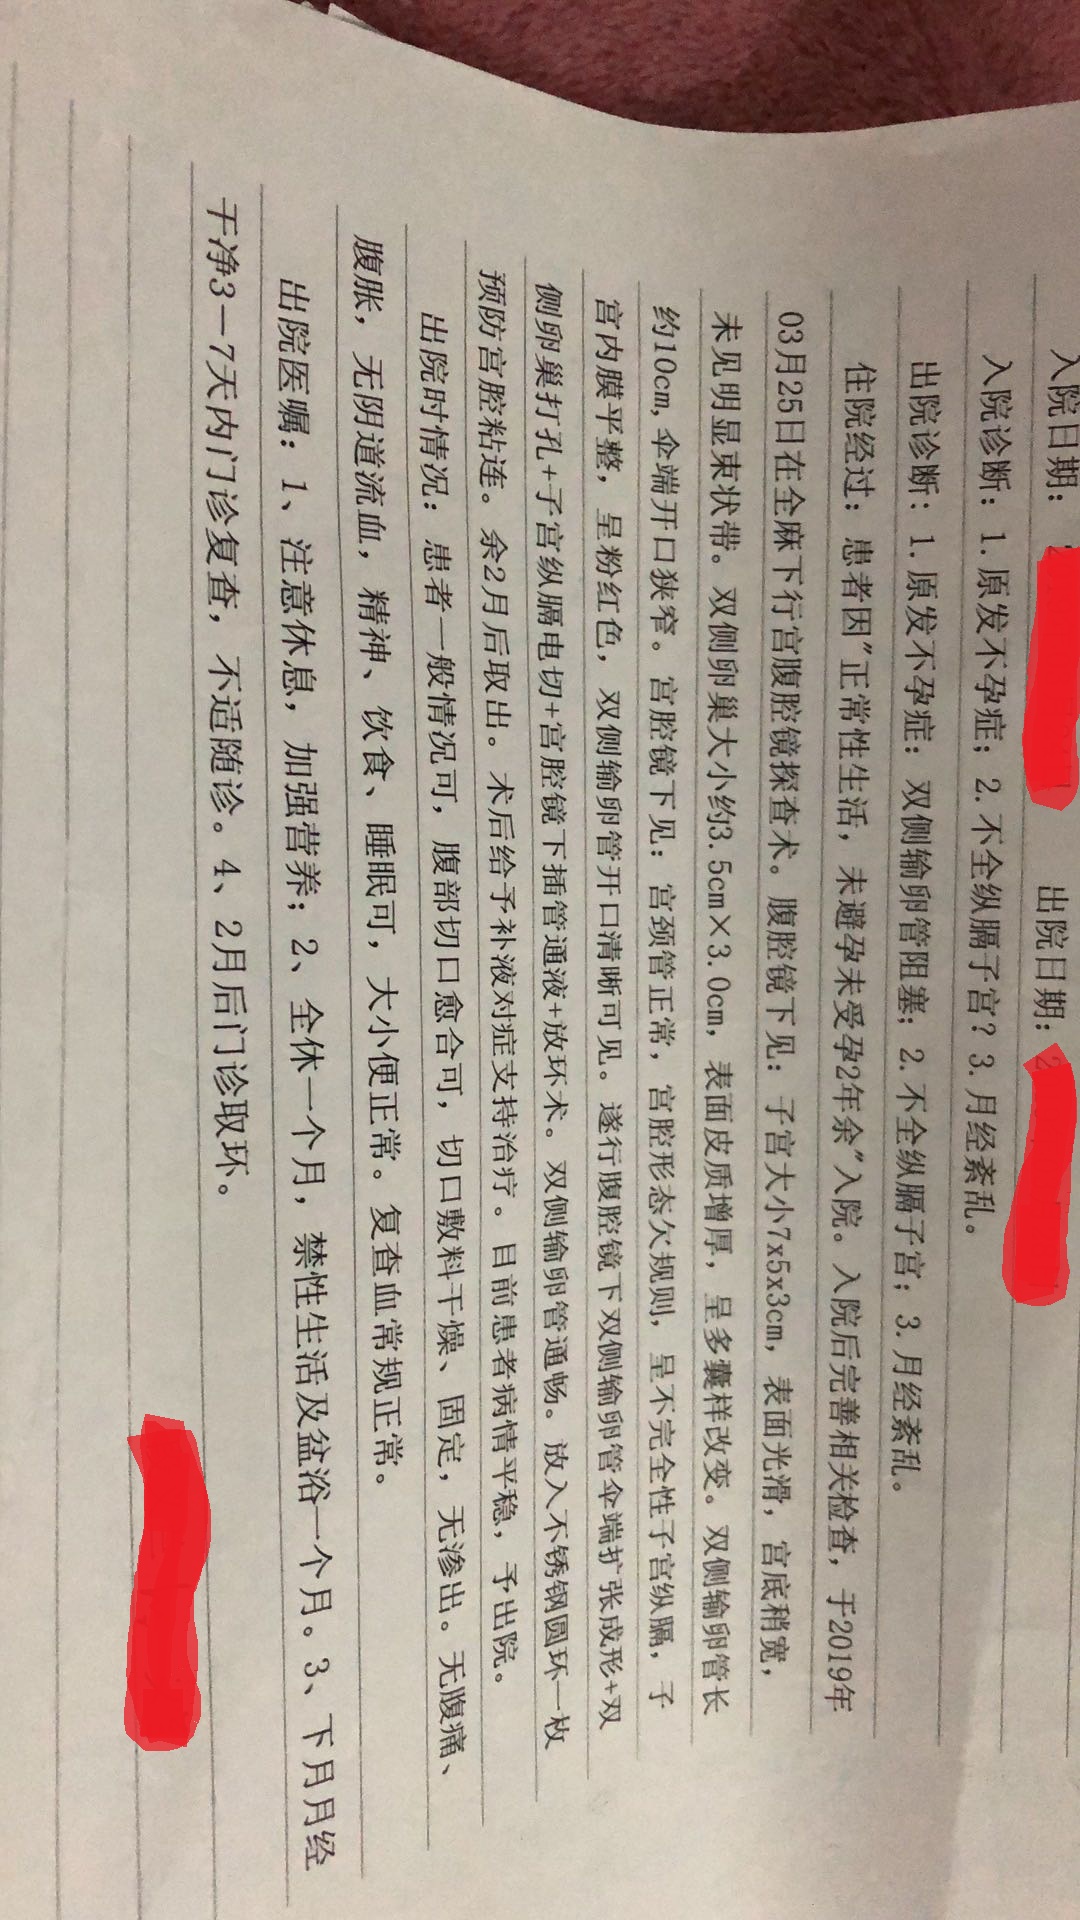 入院日期： 出院日期：2
入院诊断：1.原发不孕症；2.不全纵膈子宫？3.月经紊乱。
出院诊断：1.原发不孕症：双侧输卵管阻塞；2.不全纵膈子宫；3.月经紊乱。
住院经过：患者因"正常性生活，未避孕未受孕2年余"入院。入院后完善相关检查，于2019年
03月25日在全麻下行宫腹腔镜探查术。腹腔镜下见：子宫大小7x5x3cm，表面光滑，宫底稍宽，
未见明显束状带。双侧卵巢大小约3.5cm×3.0cm，表面皮质增厚，呈多囊样改变。双侧输卵管长
约10cm,伞端开口狭窄。宫腔镜下见：宫颈管正常，宫腔形态欠规则，呈不完全性子宫纵膈，子
宫内膜平整，呈粉红色，双侧输卵管开口清晰可见。遂行腹腔镜下双侧输卵管伞端扩张成形+双
侧卵巢打孔+子宫纵膈电切+宫腔镜下插管通液+放环术。双侧输卵管通畅。放入不锈钢圆环一枚
预防宫腔粘连。余2月后取出。术后给予补液对症支持治疗。目前患者病情平稳，予出院。
出院时情况：患者一般情况可，腹部切口愈合可，切口敷料干燥、固定，无渗出。无腹痛、
腹胀，无阴道流血，精神、饮食、睡眠可，大小便正常。复查血常规正常。
出院医嘱：1、注意休息，加强营养；2、全休一个月，禁性生活及盆浴一个月。3、下月月经
干净3－7天内门诊复查，不适随诊。4、2月后门诊取环。